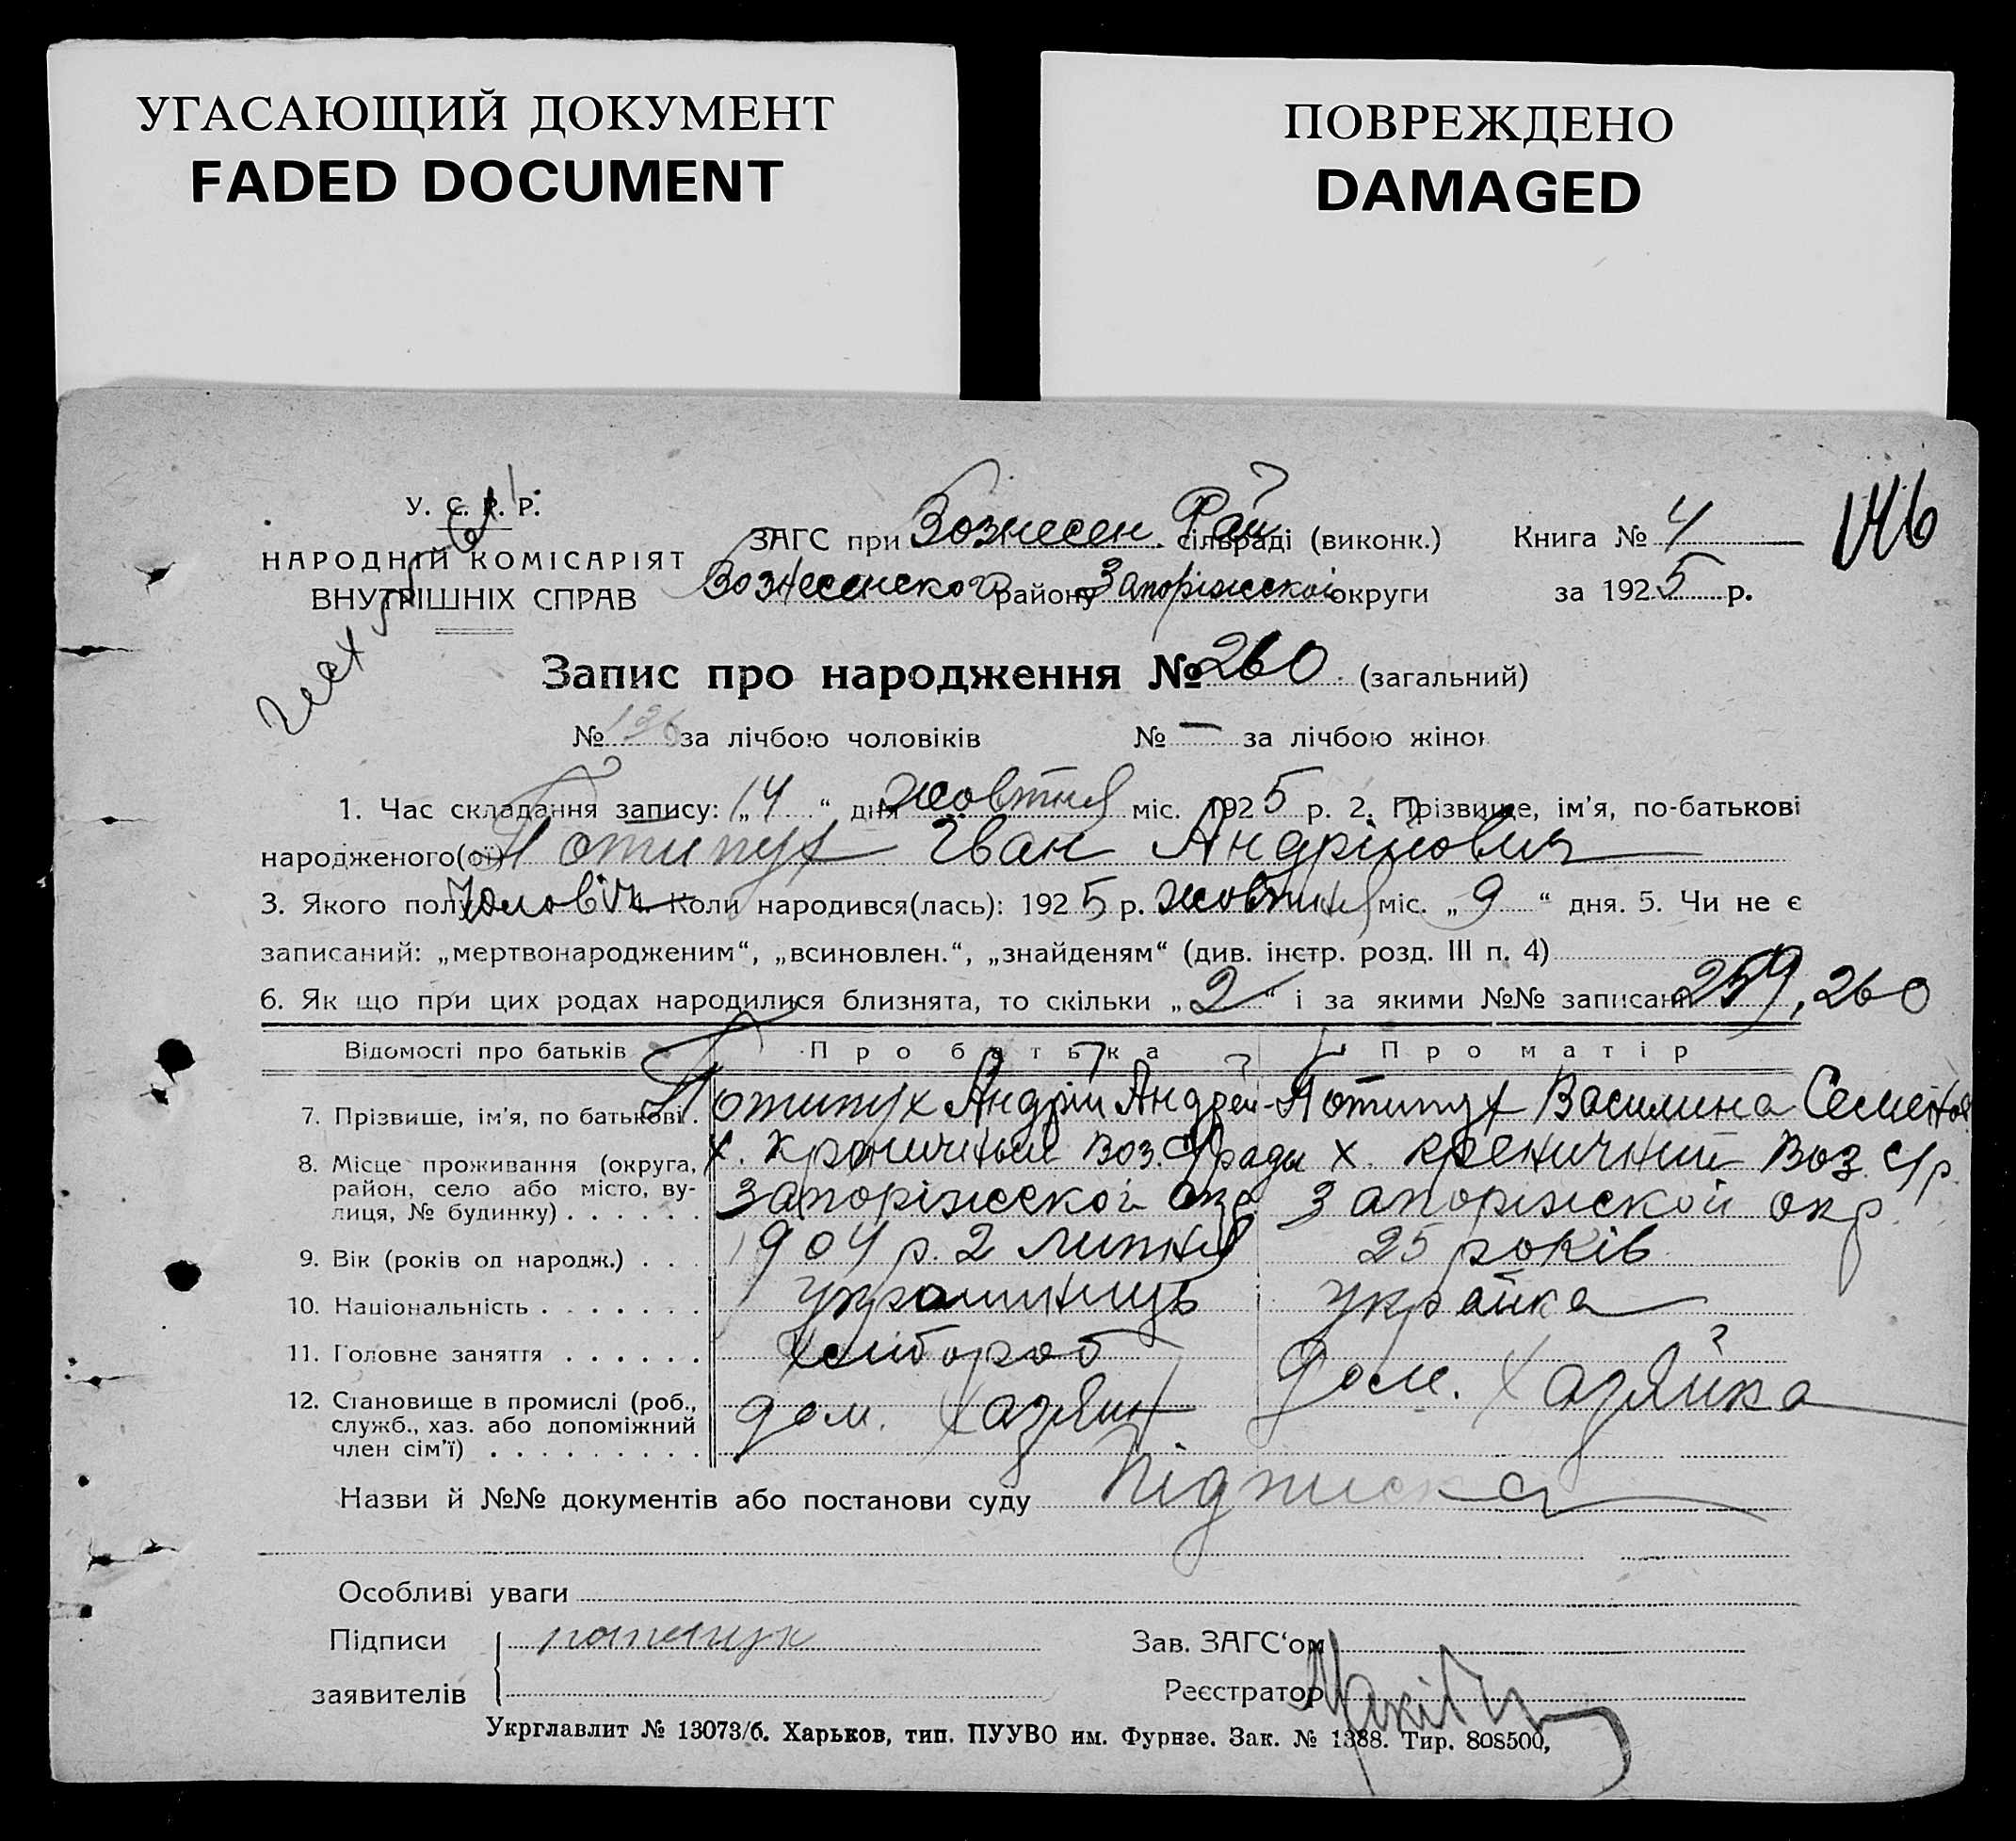 УГАСАЮЩИЙ ДОКУМЕНТ
FADED DOCUMENT
ПОВРЕЖДЕНО
DAMAGED
У. С. Р. Р.
НАРОДНІЙ КОМІСАРІЯТ
ВНУТРІШНІХ СПРАВ
ЗАГС при Вознесен. Рай сільраді (виконк.)
Вознесенского району Запоріжскоі округи
Книга № 4
за 1925 р.
146
Запис про народження № 260 (загальний)
№ 136 за лічбою чоловіків № — за лічбою жінок
1. Час складання запису: „14“ дня жовтня міс. 1925 р. 2. Прізвище, ім'я, по-батькові
народженого(ої) Потипух Іван Андрійович
3. Якого полу Чоловіч. Коли народився(лась): 1925 р. жовтня міс. „9“ дня. 5. Чи не є
записаний: „мертвонародженим“, „всиновлен.“, „знайденям“ (див. інстр. розд. III п. 4)
6. Як що при цих родах народилися близнята, то скільки „2“ і за якими №№ записані 259, 260
Відомості про батьків Про батька Про матір
7. Прізвище, ім'я, по батькові. Потипух Андрій Андрей- Потипух Василина Семенов
8. Місце проживання (округа, х. Кроничный Воз. С/ради х. Креничний Воз. С/р.
район, село або місто, ву- Запоріжскоі окр. Запоріжской окр.
лиця, № будинку) . . . . . .
9. Вік (років од народж.) . . . 1904 р. 2 липня 25 років
10. Національність . . . . . . . украининць украйка
11. Головне заняття . . . . . . Хлибороб
12. Становище в промислі (роб., дом. Хазяин. Дом. Хазяйка
служб., хаз. або допоміжний
член сім'ї) . . . . . . . . .
Назви й №№ документів або постанови суду Підписка
Особливі уваги
Підписи потипух Зав. ЗАГС‘ом
заявителів Реєстратор
Укрглавлит № 13073/б. Харьков, тип. ПУУВО им. Фурнзе. Зак. № 1388. Тир. 808500,